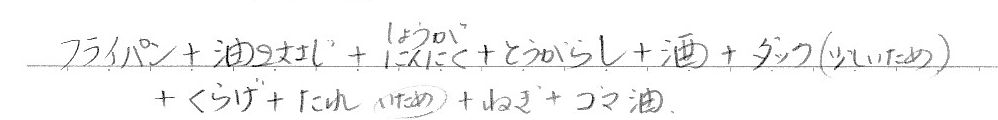 フライパン + 油2大さじ + しょうが にんにく + とうがらし + 酒 + ダック (少しいため)
+ くらげ + たれ いため + ねぎ + コマ油